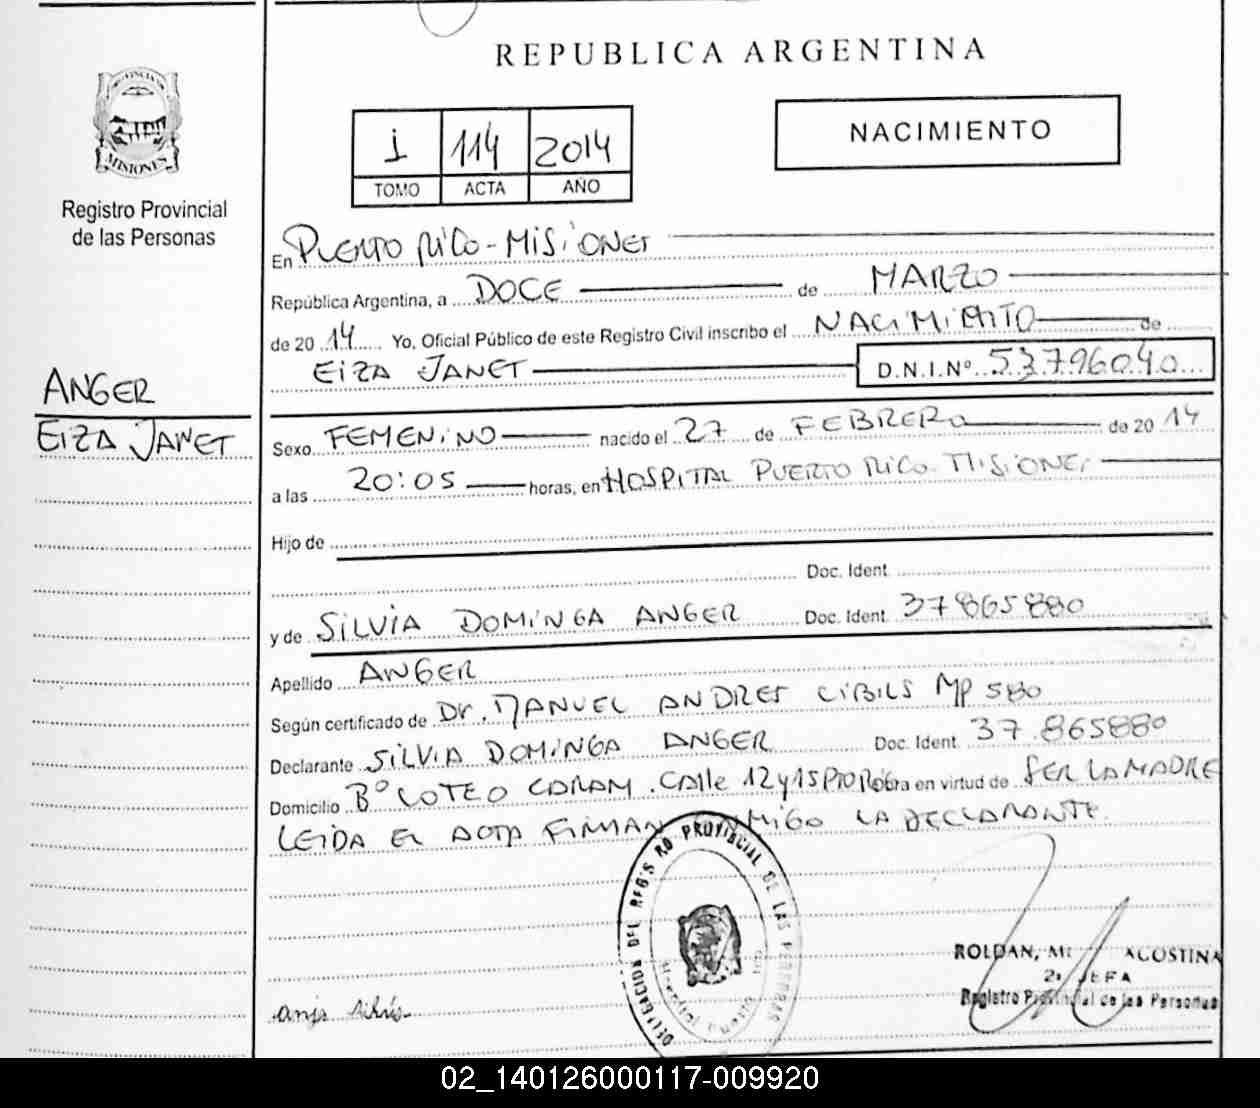 REPUBLICA ARGENTINA
PROVINCIA DE
MISIONES
Registro Provincial
de las Personas
1 114 2014
TOMO ACTA AÑO
NACIMIENTO
En PUERTO RICO - MISIONES
República Argentina, a DOCE de MARZO
de 2014 Yo, Oficial Público de este Registro Civil inscribo el NACIMIENTO de
EIZA JANET D.N.I.Nº 53796040
ANGER
EIZA JANET
Sexo FEMENINO nacido el 27 de FEBRERO de 2014
a las 20:05 horas, en HOSPITAL PUERTO RICO - MISIONES
Hijo de
Doc. Ident.
y de SILVIA DOMINGA ANGER Doc. Ident. 37865880
Apellido ANGER
Según certificado de Dr. MANUEL ANDRES CIBILS MP 580
Declarante SILVIA DOMINGA ANGER Doc. Ident. 37.865880
Domicilio Bº LOTEO CARAM. Calle 12 y 15 Pto Rico obra en virtud de SER LA MADRE
LEIDA EL ACTA FIRMAN CONMIGO LA DECLARANTE.
DELEGACION DEL REGISTRO PROVINCIAL DE LAS PERSONAS
ROLDAN, AGOSTINA
2ª JEFA
Registro Provincial de las Personas
02_140126000117-009920